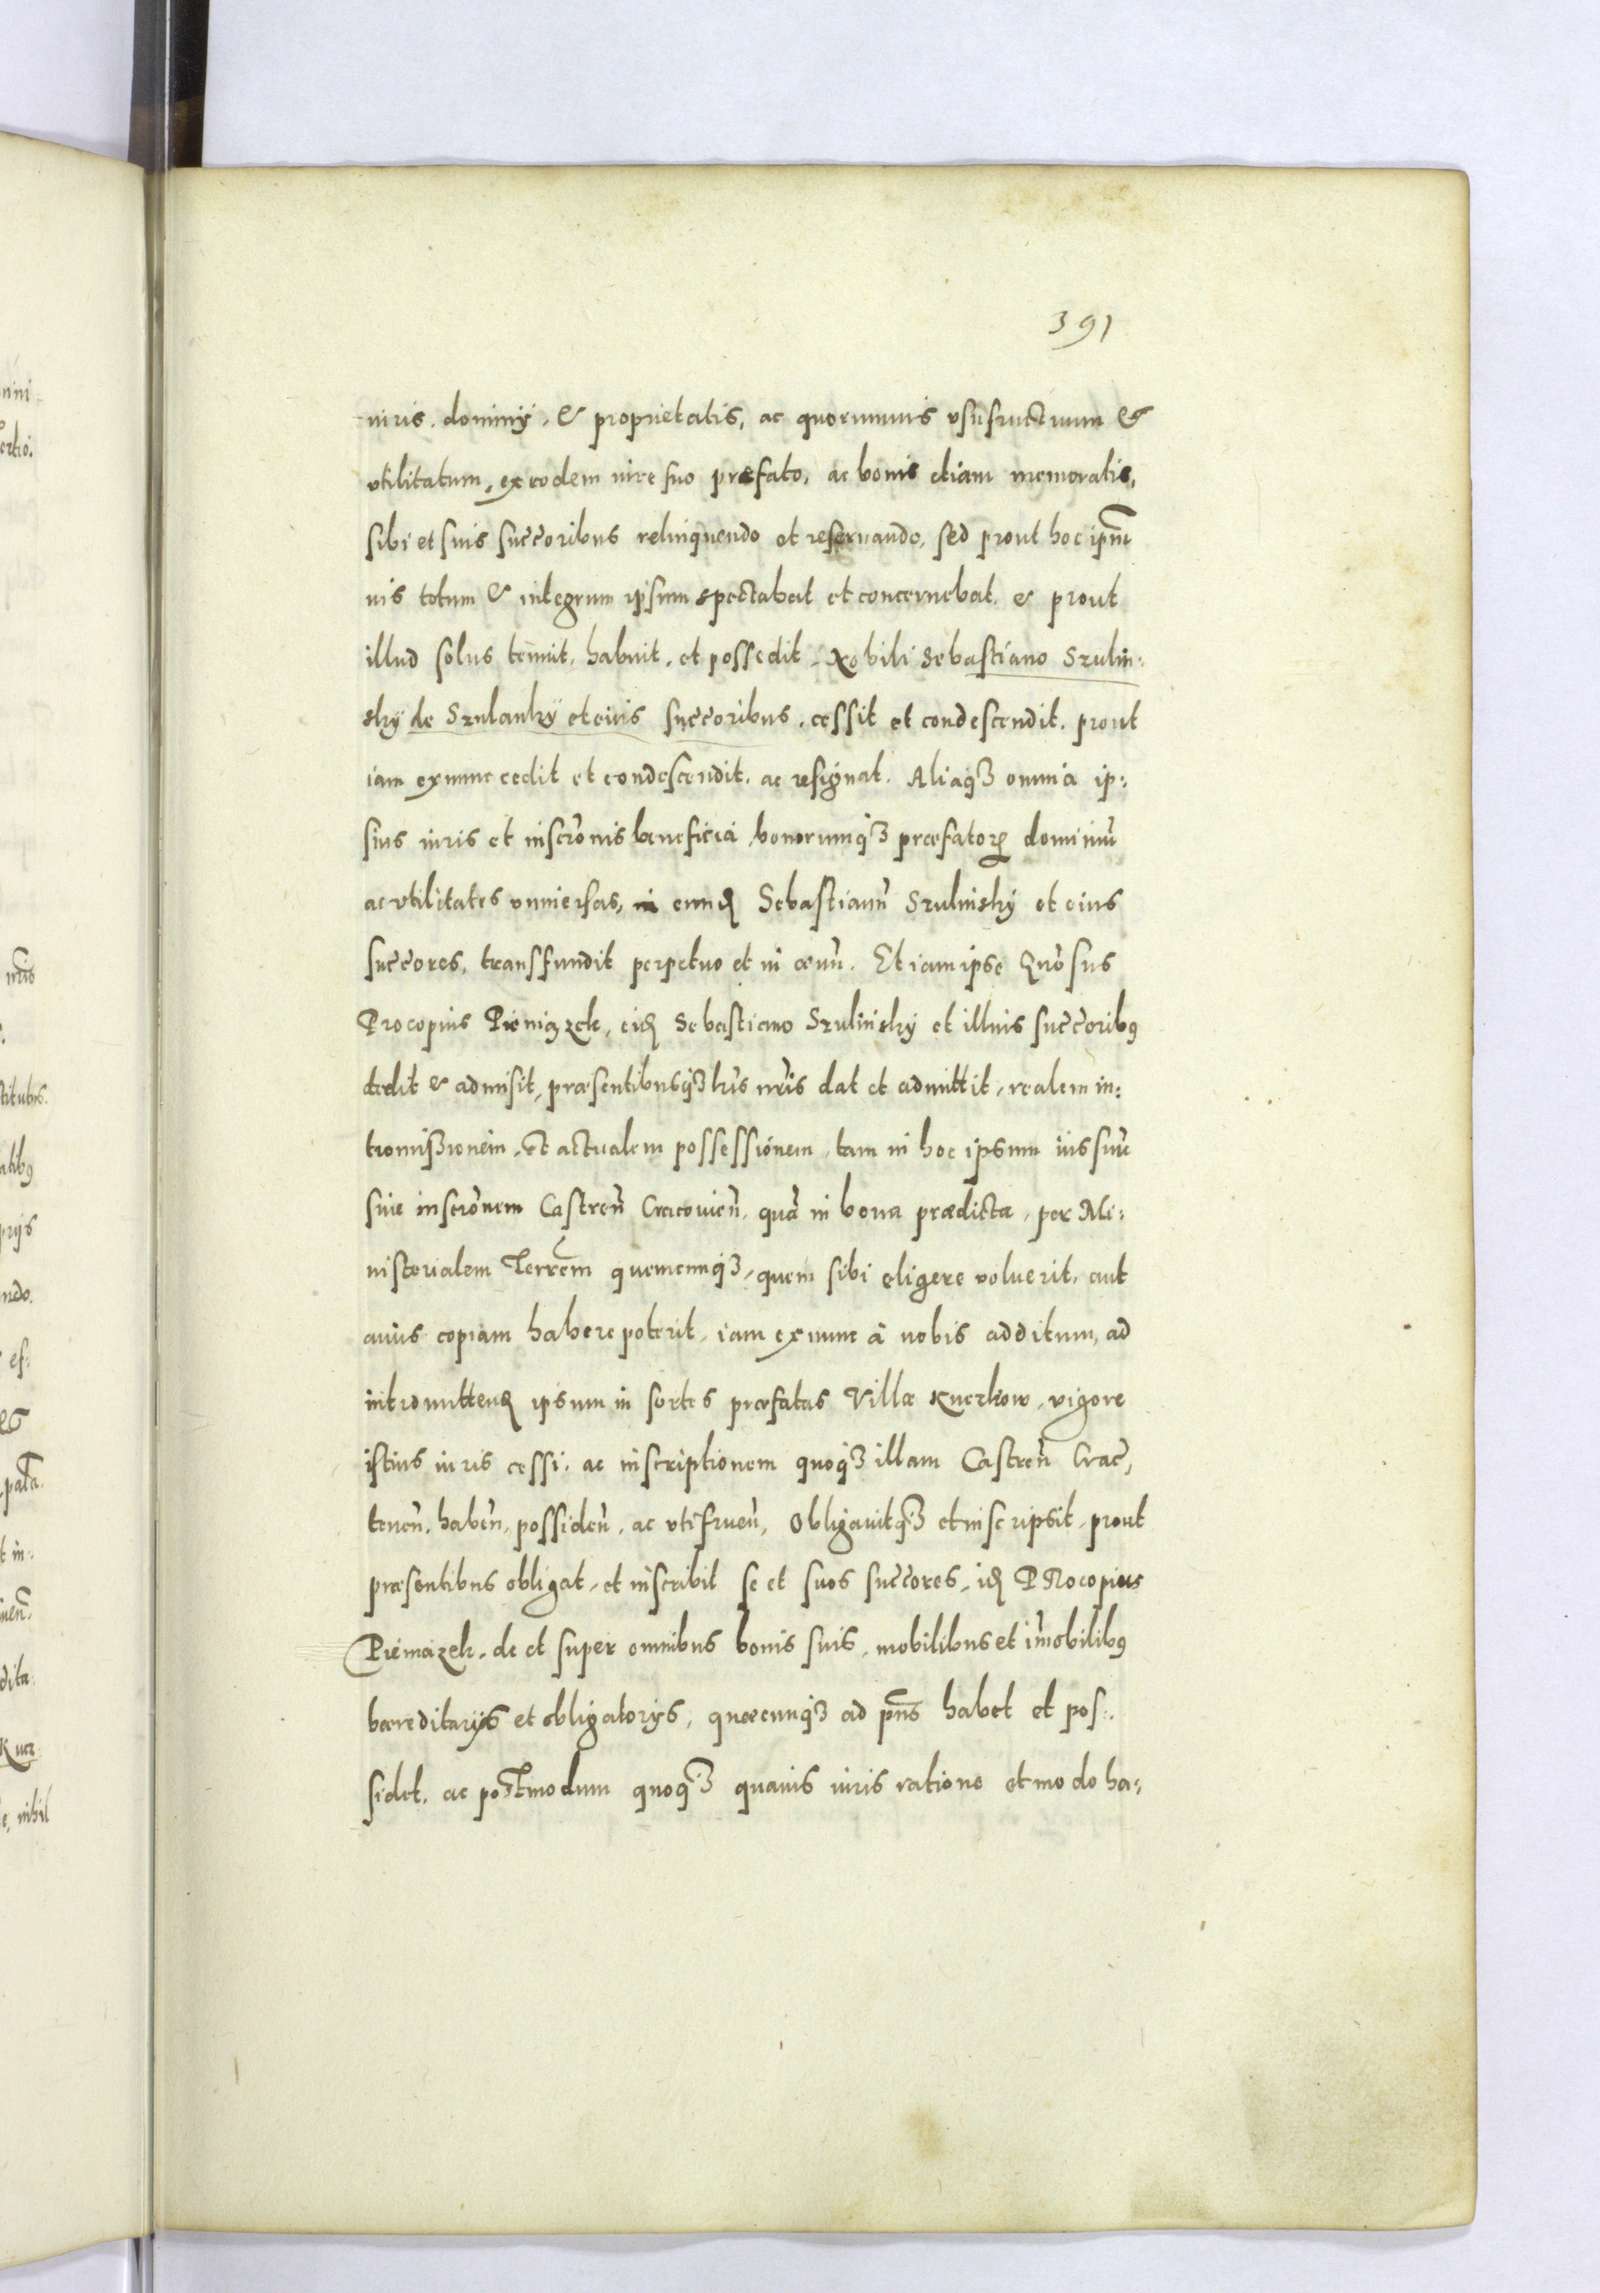 391
iuris, dominij, & proprietatis, ac quorumuis vsufructuum &
vtilitatum, ex eodem iure suo præfato, ac bonis etiam memoratis,
sibi et suis succ̃oribus relinquendo et reseruando, sed prout hoc ipm̃
ius totum & integrum ipsum spectabat et concernebat, & prout
illud solus tenuit, habuit, et possedit, Nobili Sebastiano Szulin:
sky de Szulanky et eius succ̃oribus, cessit et condescendit, prout
iam exnunc cedit et condescendit, ac resignat. Aliaqꝫ omnia ip:
sius iuris et inscr̃onis beneficia, bonorumqꝫ præfatorꝝ dominiũ
ac vtilitates vniuersas, in eund̃ Sebastianũ Szulinsky et eius
succ̃ores, transfundit perpetuo et in æuũ. Et iam ipse Gñosus
Procopius Pieniązek, eid̃ Sebastiano Szulinsky et illius succ̃oribꝰ
dedit & admisit, præsentibusqꝫ hĩs nr̃is dat et admittit, realem in:
tromissionem, et actualem possessionem, tam in hoc ipsum ius suũ
siue inscr̃onem Castreñ Cracouieñ, quã in bona prædicta, per Mi:
nisterialem Terrẽm quemcunqꝫ, quem sibi eligere voluerit, aut
cuius copiam habere poterit, iam exnunc à nobis additum, ad
intromittend̃ ipsum in sortes præfatas Villæ Kwerkow, vigore
istius iuris cessi, ac inscriptionem quoqꝫ illam Castreñ Crac̃,
teneñ, habeñ, possideñ, ac vtifrueñ, Obligauitqꝫ et inscripsit, prout
præsentibus obligat, et inscribit se et suos succ̃ores, id̃ Procopius
Pieniązek, de et super omnibus bonis suis, mobilibus et im̃obilibꝰ
hæreditarijs et obligatorijs, quæcunqꝫ ad pñs habet et pos:
sidet, ac postmodum quoqꝫ quauis iuris ratione et modo ha: